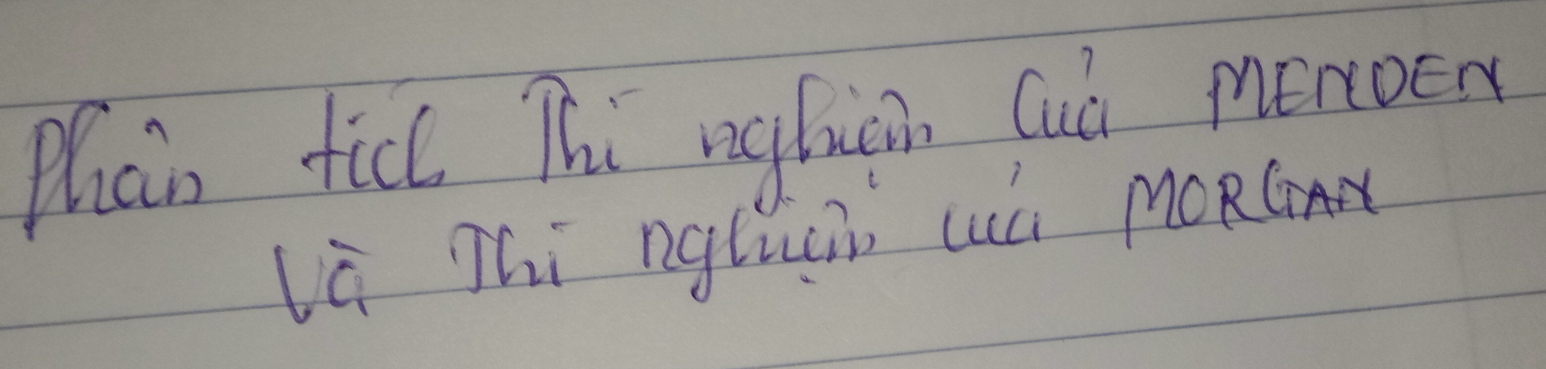 Phân tích Thí nghiệm Của MENDEN
Và Thí nghiệm của MORGAN